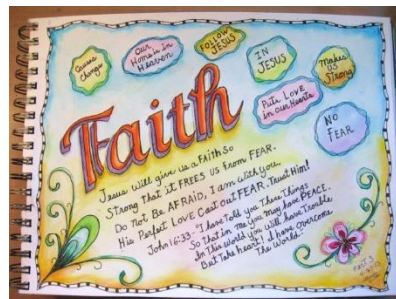 Causes
Change
Our
Home is in
Heaven
Follow
JESUS
IN
JESUS
Makes
US
Strong
Puts LOVE
in our Hearts
NO
FEAR
Faith
Jesus will give us a FAith So
Strong that it FREES US From FEAR.
Do Not Be AFRAID, I am with You.
His Perfect LOVE Cast Out FEAR. Trust Him!
John 16:33 - "I have told you These Things
So that in me you may have PEACE.
In This world you will have Trouble
But Take heart! I have overcome
The World."